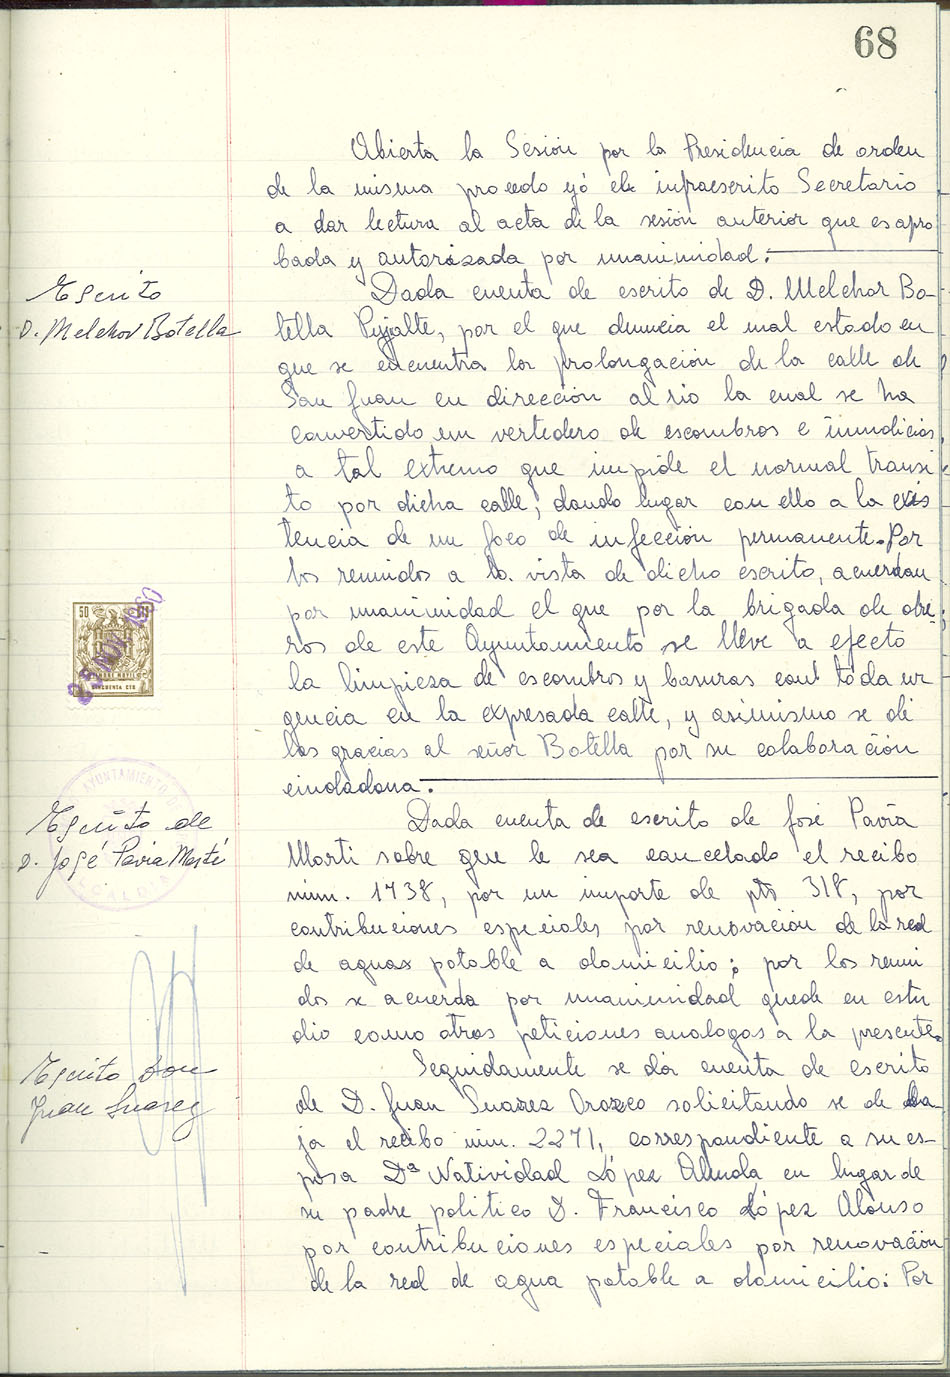 68
Abierta la Sesión por la Presidencia de orden
de la misma procedo yó el infraescrito Secretario
a dar lectura al acta de la sesión anterior que es apro
bada y autorizada por unanimidad.
Escrito
D. Melchor Botella
Dada cuenta de escrito de D. Melchor Bo-
tella Pujalte, por el que denuncia el mal estado en
que se encuentra la prolongación de la calle de
San Juan en dirección al rio la cual se ha
convertido en vertedero de escombros e inmdicias,
a tal extremo que impide el normal transi
to por dicha calle, dando lugar con ello a la exis
tencia de un foco de infección permanente. Por
los reunidos a la vista de dicho escrito, acuerdan
por unanimidad el que por la brigada de obre-
ros de este Ayuntamiento se lleve a efecto
la limpieza de escombros y basuras con toda ur
gencia en la expresada calle, y asimismo se dé
las gracias al señor Botella por su colaboración
ciudadana.
50
23 NOV 1960
CINCUENTA CTS
AYUNTAMIENTO DE
ALCALDIA
Escrito de
D. José Pavia Martí
Dada cuenta de escrito de José Pavía
Marti sobre que le sea cancelado el recibo
núm. 1738, por un importe de pts 318, por
contribuciones especiales por renovación de la red
de aguas potable a domicilio; por los reuni
dos se acuerda por unanimidad quede en estu
dio como otras peticiones analogas a la presente.
Escrito Don
Juan Suarez
Seguidamente se dá cuenta de escrito
de D. Juan Suarez Orozco solicitando se de ba
ja el recibo núm. 2271, correspondiente a su es-
posa Dª Natividad López en lugar de
su padre politico D. Francisco López Alonso
por contribuciones especiales por renovación
de la red de agua potable a domicilio: Por